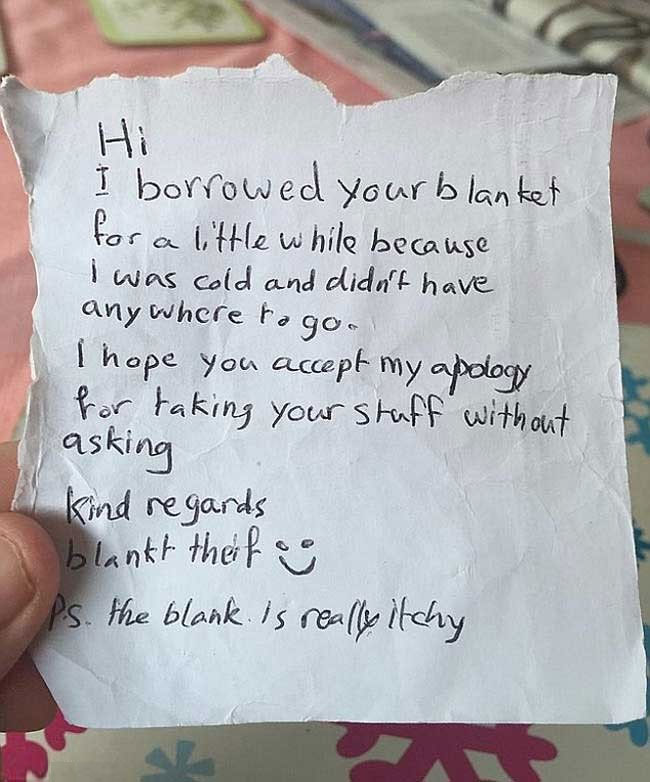 Hi
I borrowed your blanket
for a little while because
I was cold and didn't have
anywhere to go.
I hope you accept my apology
for taking your stuff without
asking
kind regards
blankt theif
Ps. the blank. is really itchy